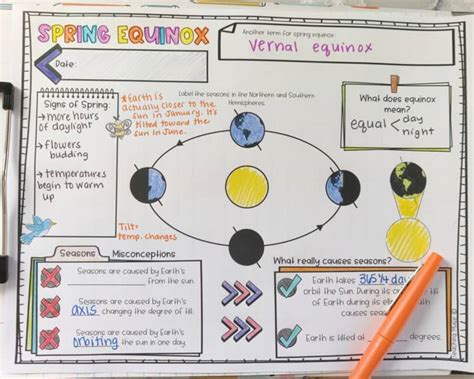 SPRING EQUINOX
Another term for spring equinox:
Vernal equinox
Date:
Label the seasons in the Northern and Southern
Hemispheres.
Signs of Spring:
→more hours
of daylight
→flowers
budding
→temperatures
begin to warm
up
*Earth is
actually closer to the
sun in January. It's
tilted toward the
sun in June.
What does equinox
mean?
equal < day
night
Tilt=
temp. changes
Seasons Misconceptions
Seasons are caused by Earth's
from the sun.
Seasons are caused by Earth's
axis changing the degree of tilt.
Seasons are caused by Earth's
orbiting the sun in one day.
What really causes seasons?
Earth takes 365 1/4 day
orbit the Sun. During its or
of Earth during its el
causes seas
Earth is tilted at degrees.